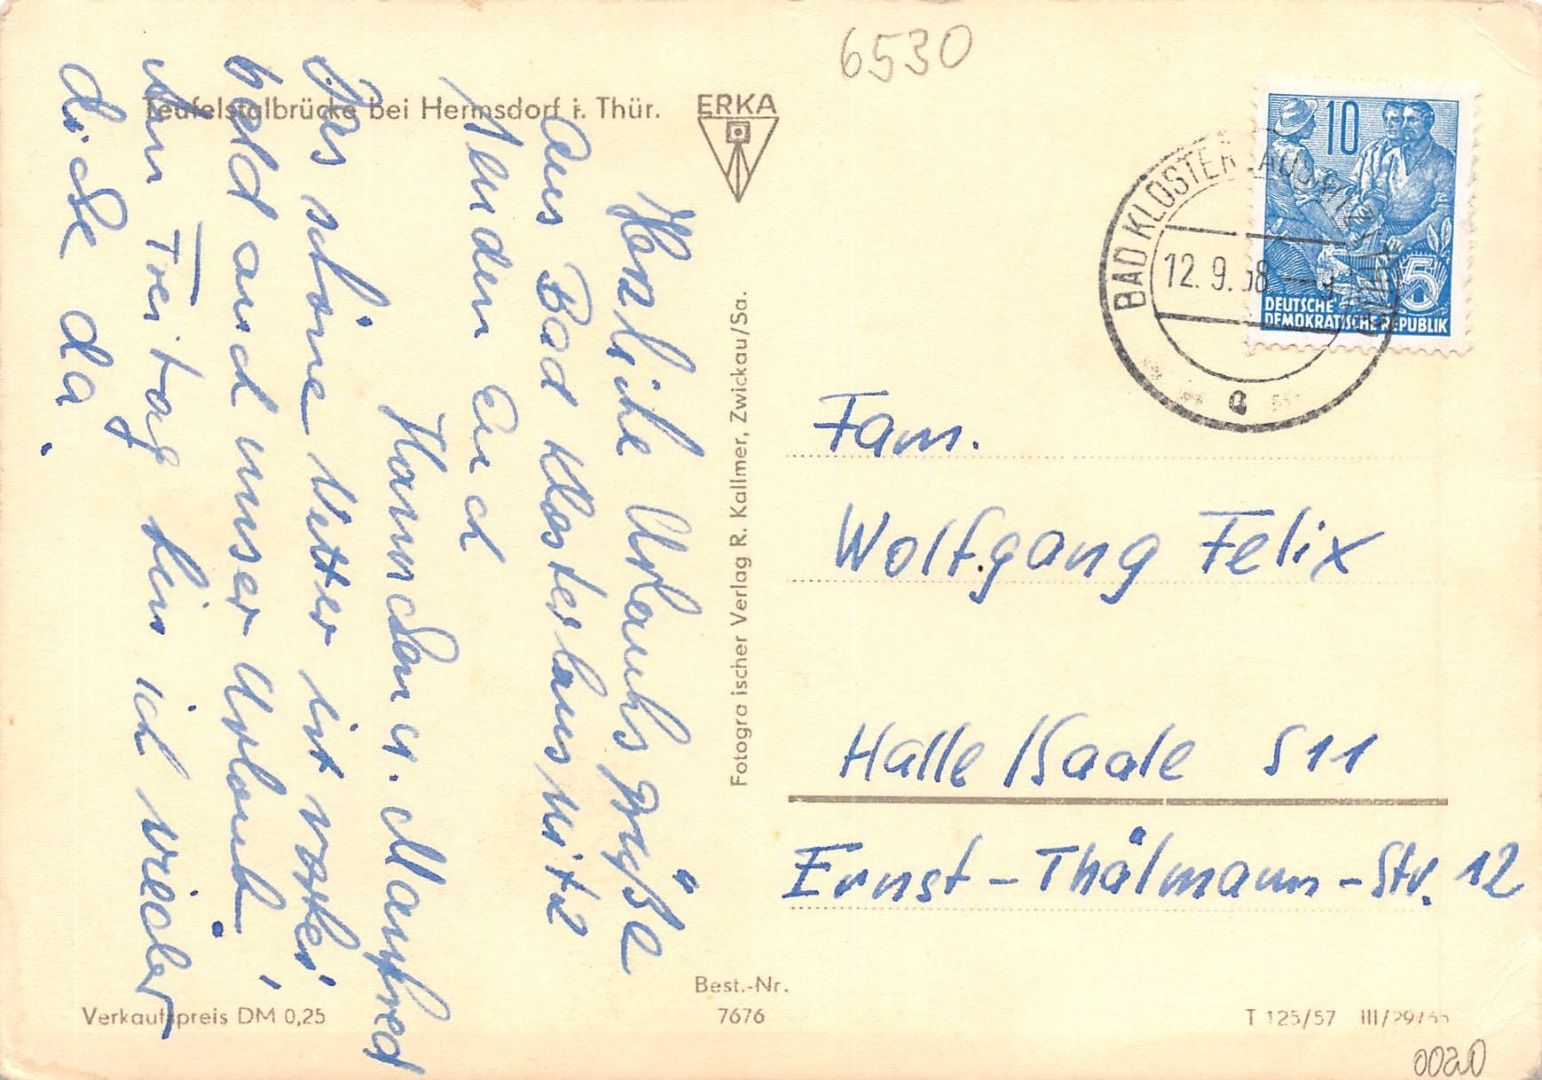 6530
Teufelstalbrücke bei Hermsdorf i. Thür.
ERKA
Herzliche Urlaubsgrüße
aus Bad Klosterlausnitz
senden Euch
Hannchen u. Manfred
Das schöne Wetter ist vorbei
bald auch unser Urlaub!
Am Freitag bin ich wieder
da.
Fotografischer Verlag R. Kallmer, Zwickau/Sa.
10
5
DEUTSCHE
DEMOKRATISCHE REPUBLIK
BAD KLOSTERLAUSNITZ
12. 9. 58
a
Fam.
Wolfgang Felix
Halle/Saale S11
Ernst-Thälmann-Str. 12
Verkaufspreis DM 0,25
Best.-Nr.
7676
T 125/57 III/29/
0020